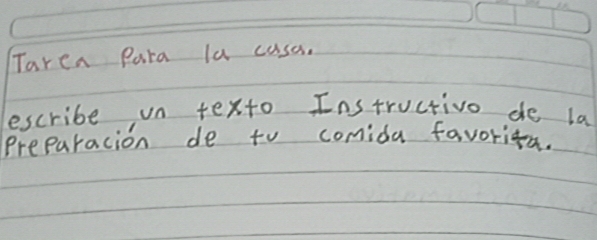 Tarea Para la casa.
escribe un texto Instructivo de la
Preparación de tu comida favorita.